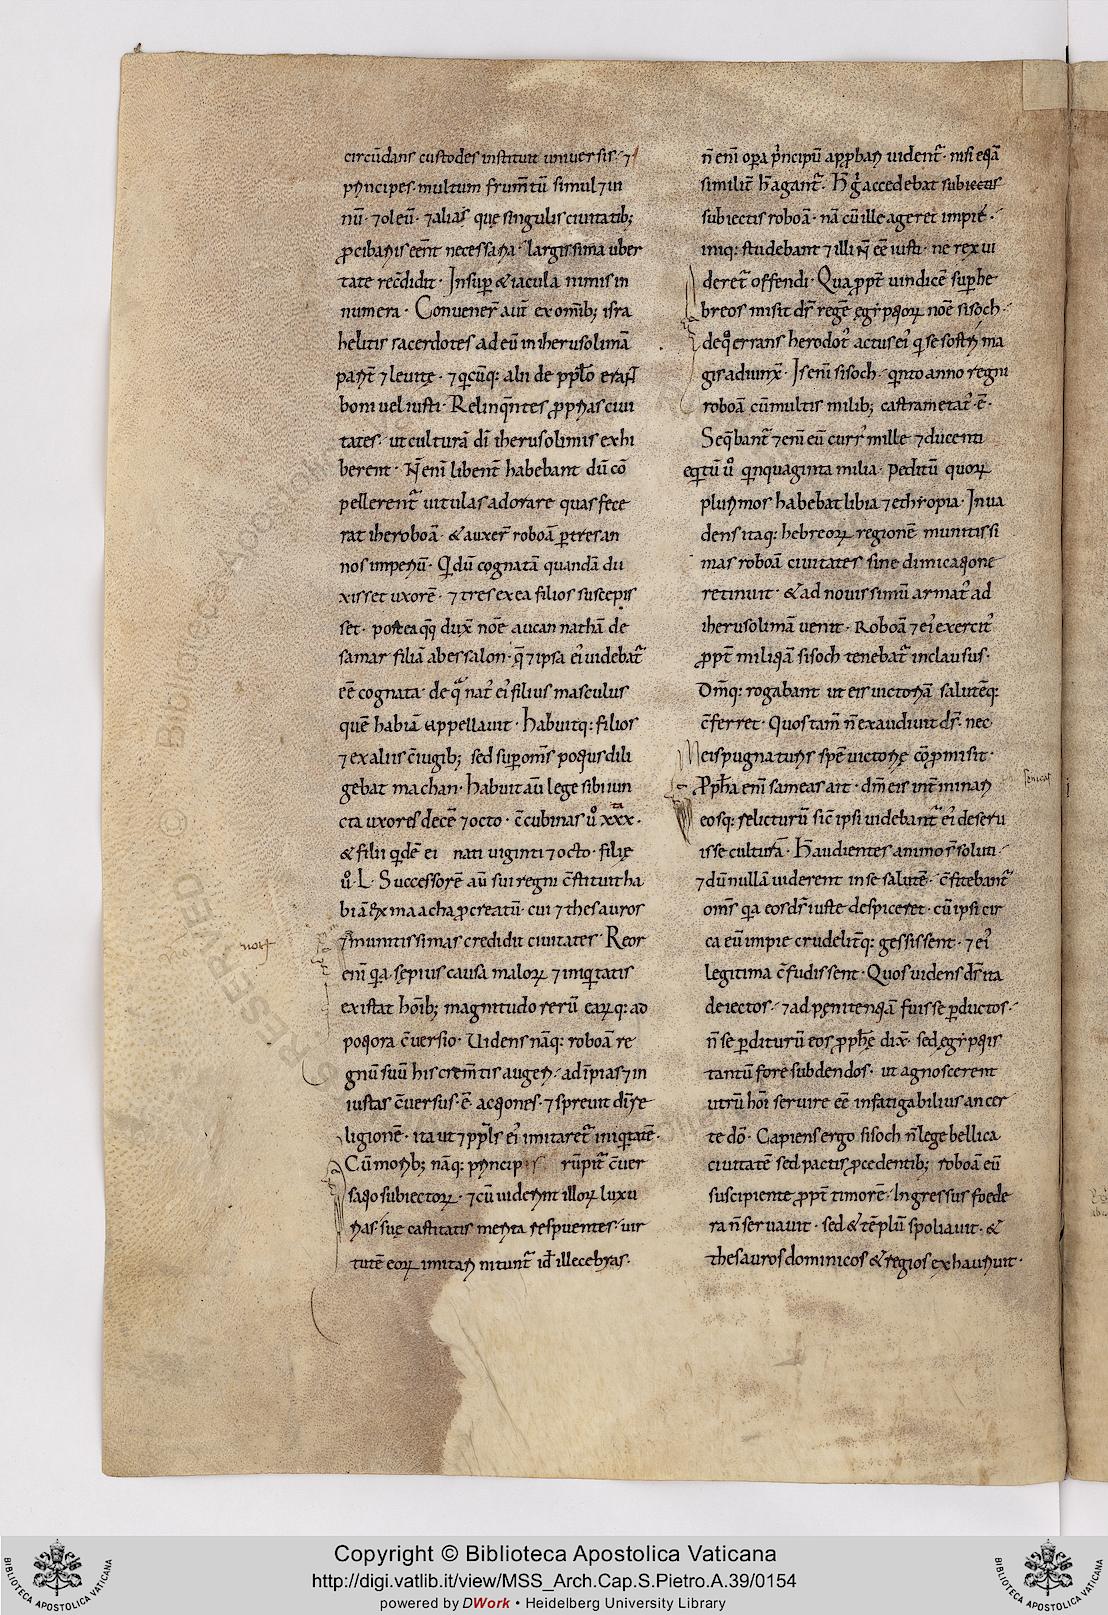 circūdans custodes instituit universis· ⁊
pncipes· multum frum̄tū simul ⁊ in
nū· ⁊ oleū· ⁊ alias quę singulis civitatib;
ꝓcibariis eēnt necessaria· largissima uber
tate recōdidit· Insup̄ & iacula nimis in
numera· Convener̄ aut̄ ex omīb; isra
helitis sacerdotes ad eū in iherusolimā
parit̄ ⁊ levitę· ⁊ q̄cūq: alii de pp̄lo erant
boni vel iusti· Relinq̄ntes ꝓprias civi
tates· ut culturā dī iherusolimis exhi
berent· N̄ enī libent̄ habebant dū cō
pellerent᷑ uitulas adorare quas fece
rat iheroboā· & auxer̄ roboā p̄ tres an
nos imperiū· Qi dū cognatā quandā du
xisset uxorē· ⁊ tres ex ea filios suscepis
set· postea q̄q̄ dux̄ noē aucan nathā de
samar filiā abessalon· q̄ ⁊ ipsa ei᷒ videbat᷑
eē cognata· de q̄ nat᷒ ei᷒ filius masculus
quē habiā appellavit· habuitq: filios
⁊ ex aliis c̄iugib; sed sup om̄s potius dili
gebat machan· habuit aū lege sibi iun
cta uxores decē ⁊ octo· c̄cubinas u̇ xxx·
& filii q̄dē ei nati viginti ⁊ octo· filię
u̇· L· Successorē aū sui regni c̄stituit ha
biā ex maacha ꝓcreatū· cui ⁊ thesauros
⁊ munitissimas credidit civitates· Reor
enī q̄a sępius causa maloꝝ ⁊ iniq̄tatis
existat hoīb; magnitudo rerū earꝝq: ad
potiora c̄versio· Uidens nāq: roboā re
gnū suū his crem̄tis augeri· ad īpias ⁊ in
iustas c̄versus· ē· actiones· ⁊ sprevit dī re
ligionē· ita ut ⁊ pp̄ls ei᷒ imitaret᷑ iniq̄tatē·
Cū morib; nāq: pncip s rūpit᷑ c̄ver
satio subiectoꝝ· ⁊ cū viderint illoꝝ luxu
rias· suę castitatis merita respuentes· vir
tutē eoꝝ imitari nitunt᷑ id illecebras·
nor̄
n̄ enī opa p̄ncipū app̄bari vident᷑· nisi eq̄a
similit̄ h̄ agant᷑· H̄ g̊ accedebat subiectis
subiectis roboā· nā cū ille ageret impie·
iniq: studebant ⁊ illi n̄ eē iusti· ne rex vi
deret᷑ offendi· Qua ꝓpt̄ vindicē sup he
breos misit d̄s regē ęgiptioꝝ noē sisoch·
de q̊ errans herodot᷒ actus ei᷒ q̄ sesostri ma
gis adiunx̄· Is enī sisoch· q̄nto anno regni
roboā cū multis milib; castrametat᷒· ē·
Seq̄bant᷑ ⁊enī eū curr᷒ mille ⁊ ducenti
eq̄tū u̇ q̄nquaginta milia· peditū quoꝝ
plurimos habebat libia ⁊ ethyopia· Inva
dens itaq: hebreoꝝ regionē munitissi
mas roboā civitates sine dimicatione
retinuit· & ad novissimū armat᷒ ad
iherusolimā venit· Roboā ⁊ ei᷒ exercit᷒
ꝓpt̄ militiā sisoch tenebat᷑ inclausus·
Dm̄q: rogabant ut eis victoriā salutēq:
c̄ferret· Quos tam̄ n̄ exaudivit d̄s· nec
eis pugnaturis spē victorię cōꝓmisit·
Ppħa enī sameas ait· dm̄ eis int̄minari
eosq: relicturū sic̄ ipsi videbant᷑ ei᷒ deseru
isse culturā· H̄ audientes animo s̄ soluti·
⁊ dū nullā viderent in se salutē· c̄fitebant᷑
om̄s q̄a eos d̄s iuste despiceret· cū ipsi cir
ca eū impie crudelit̄q: gessissent· ⁊ ei᷒
legitima c̄fudissent· Quos videns d̄s ita
deiectos· ⁊ ad pęnitentiā fuisse pductos·
n̄ se pditurū eos ꝓpħę dix̄· sed ęgiptiis
tantū fore subdendos· ut agnoscerent
utrū hoī servire eē infatigabilius an cer
te dō· Capiens ergo sisoch n̄ lege bellica
civitatē sed pactis ꝓcedentib; roboā eū
suscipiente ꝓpt̄ timorē· Ingressus foede
ra n̄ servavit· sed & tēplū spoliavit· &
thesauros dominicos & regios exhauriit·
Copyright © Biblioteca Apostolica Vaticana
http://digi.vatlib.it/view/MSS_Arch.Cap.S.Pietro.A.39/0154
powered by DWork • Heidelberg University Library
BIBLIOTECA APOSTOLICA VATICANA
BIBLIOTECA APOSTOLICA VATICANA